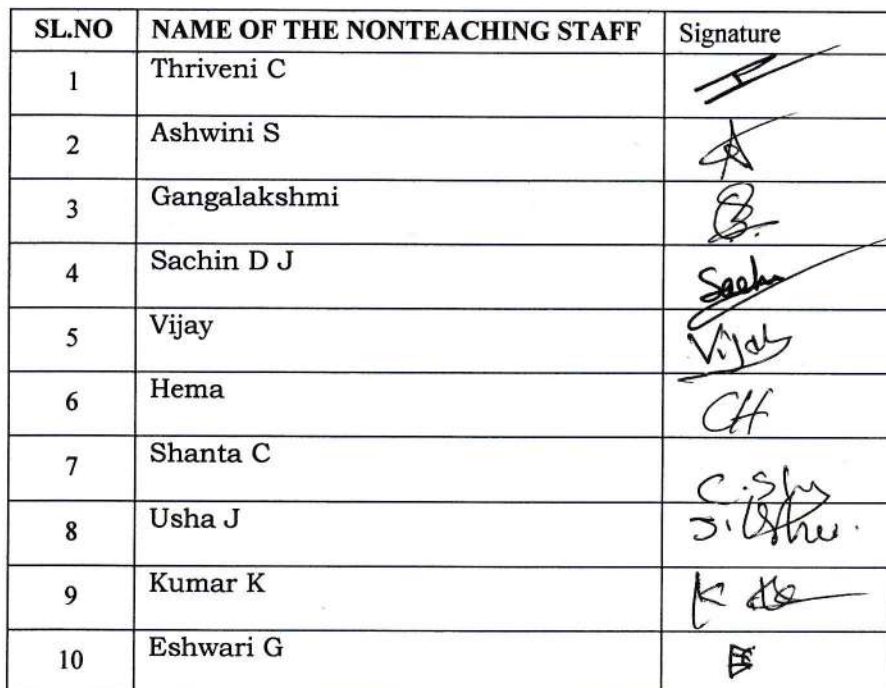 SL.NO NAME OF THE NONTEACHING STAFF Signature
1 Thriveni C
2 Ashwini S
3 Gangalakshmi
4 Sachin D J
5 Vijay Vijay
6 Hema CH
7 Shanta C
8 Usha J J. Usha
9 Kumar K
10 Eshwari G